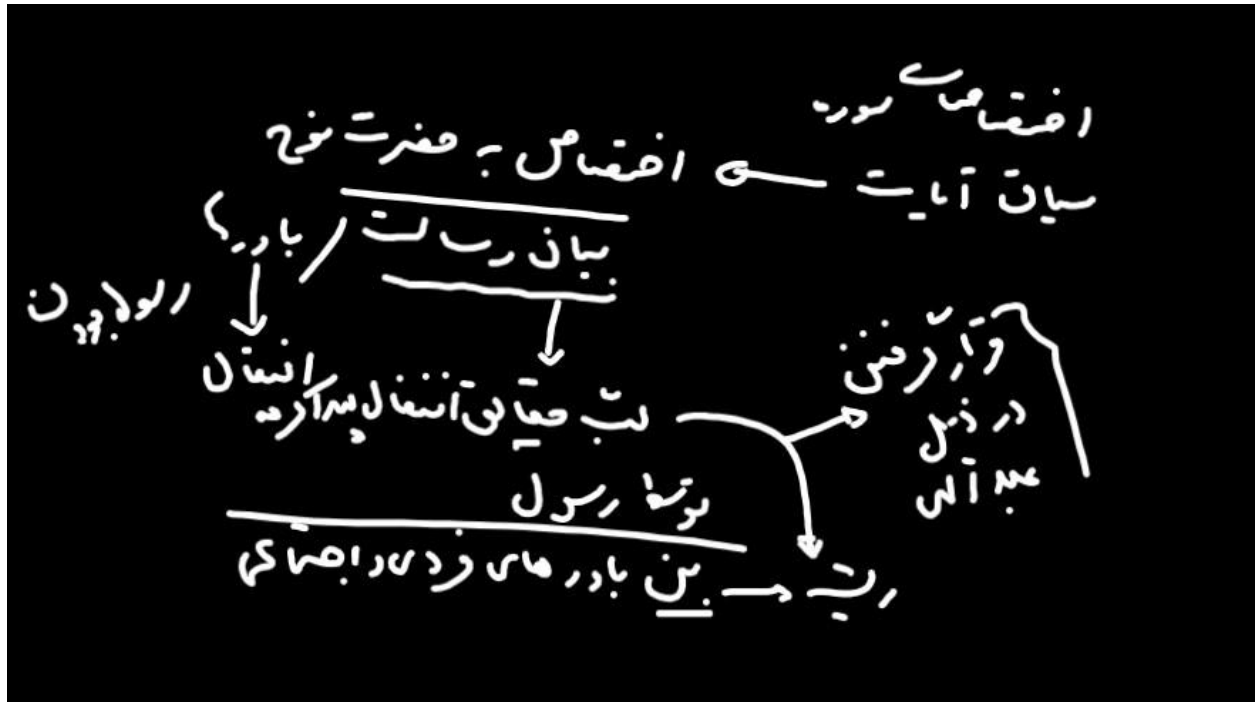 اختصاص سوره
سیاق آیات
اختصاص به حضرت نوح
بیان رسالت / باورها
لبّ حقایق انتقال پیدا کرده
انتقال
توسط رسول
بین باورهای فردی و اجتماعی
قرار گرفتن
در ذیل
عبد الهی